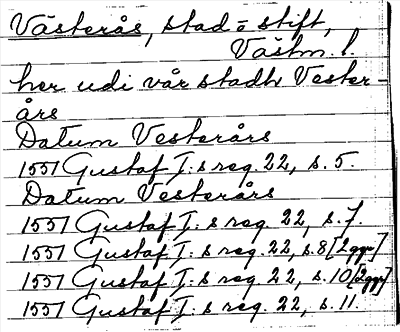 Västerås, stad o stift,
Västm. l.
her udi vår stadh Vester-
års
Datum Vesterårs
1551 Gustaf I:s reg. 22, s. 5.
Datum Vesterårs
1551 Gustaf I:s reg. 22, s. 7.
1551 Gustaf I:s reg. 22, s. 8 [2 ggr]
1551 Gustaf I:s reg. 22, s. 10 [2 ggr]
1551 Gustaf I:s reg. 22, s. 11.